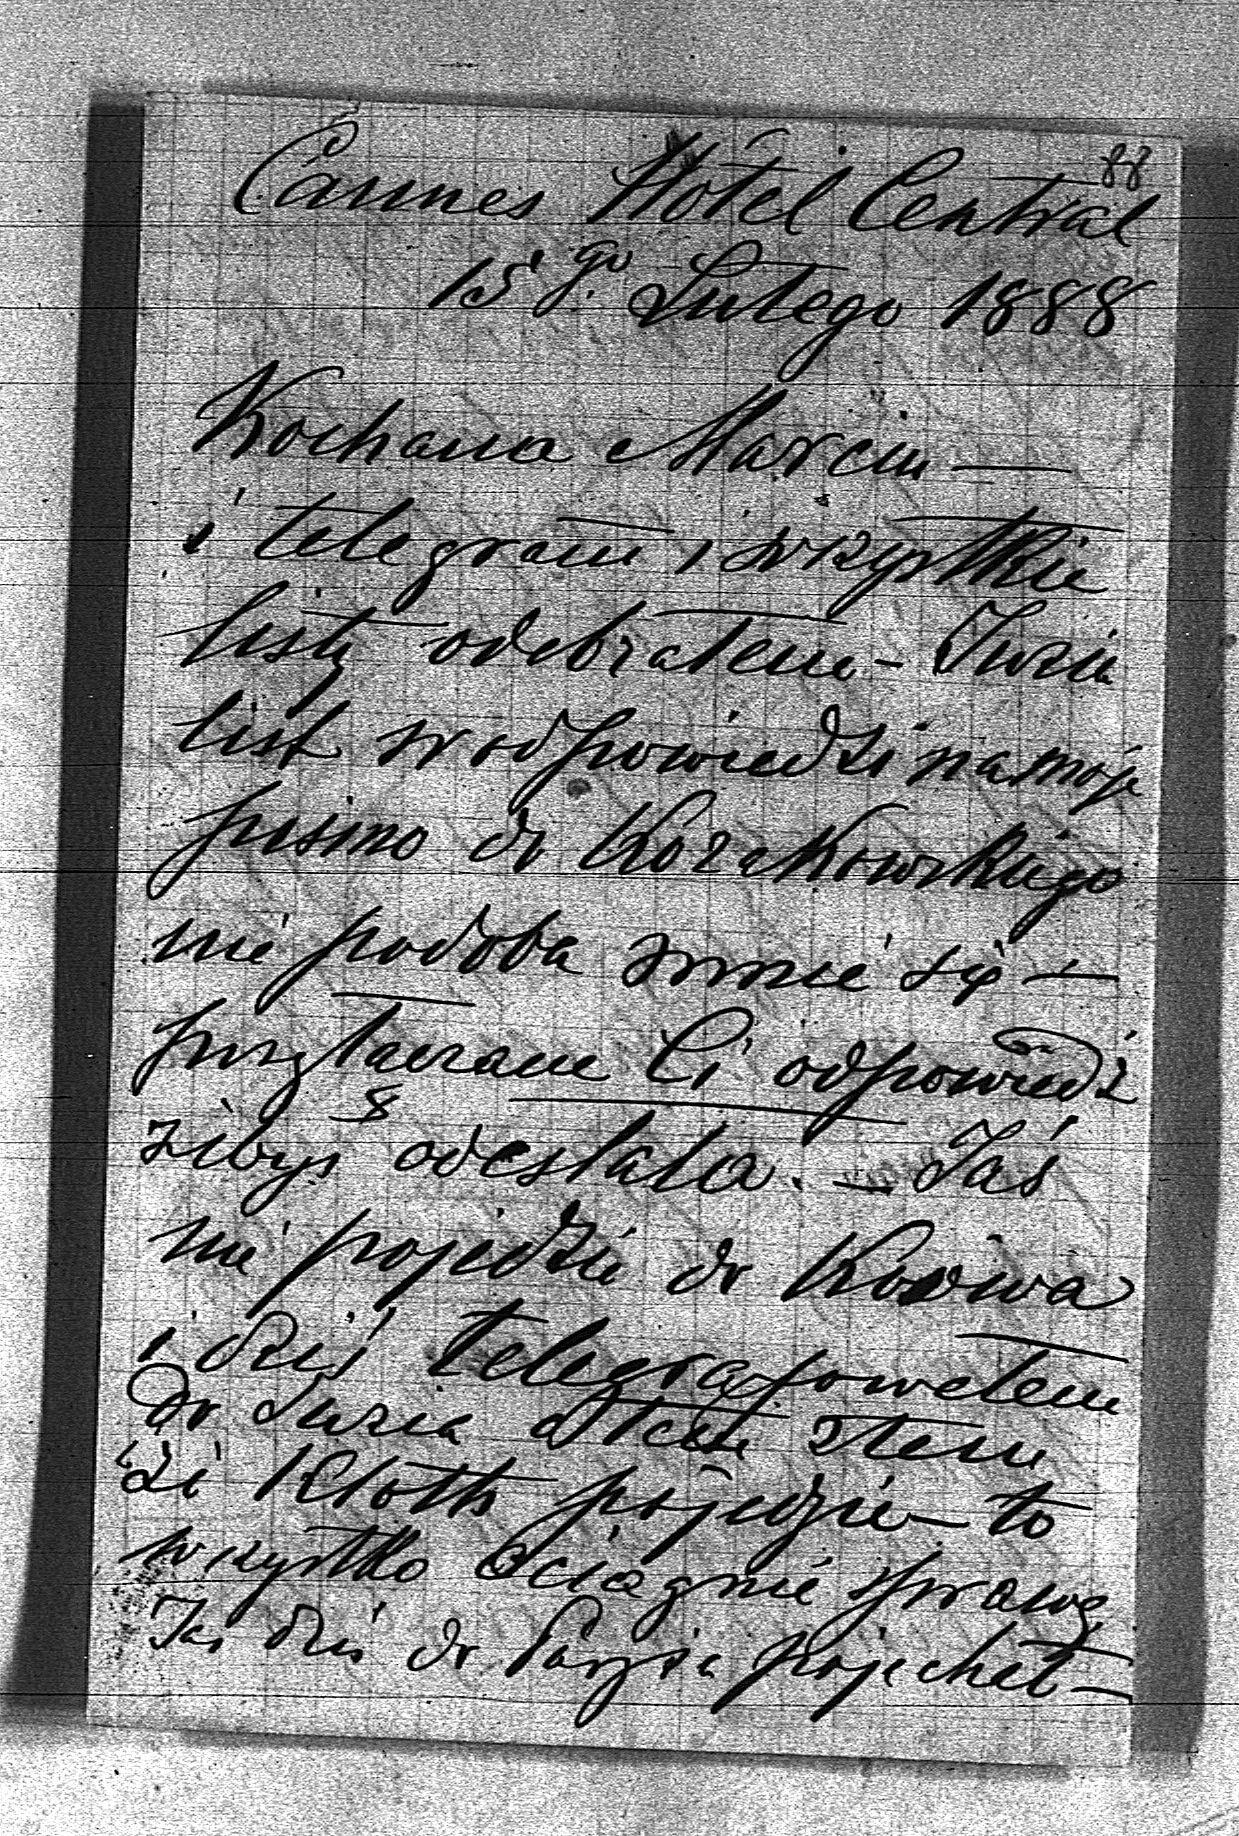 88
Cannes Hôtel Central
15go Lutego 1888
Kochana Marciu —
i telegram i wszystkie
listy odebrałem — Juzia
list w odpowiedzi na moje
pismo do Korzkowskiego
nie podoba mnie się —
przytaczane Ci odpowiedź
żebyś odesłała. — Jaś
nie pojedzie do
i dziś telegrafowałem
do Juzia z tem
że pojedzie — to
wszystko ociągnie sprawę
Jaś dziś do Paryża pojechał —